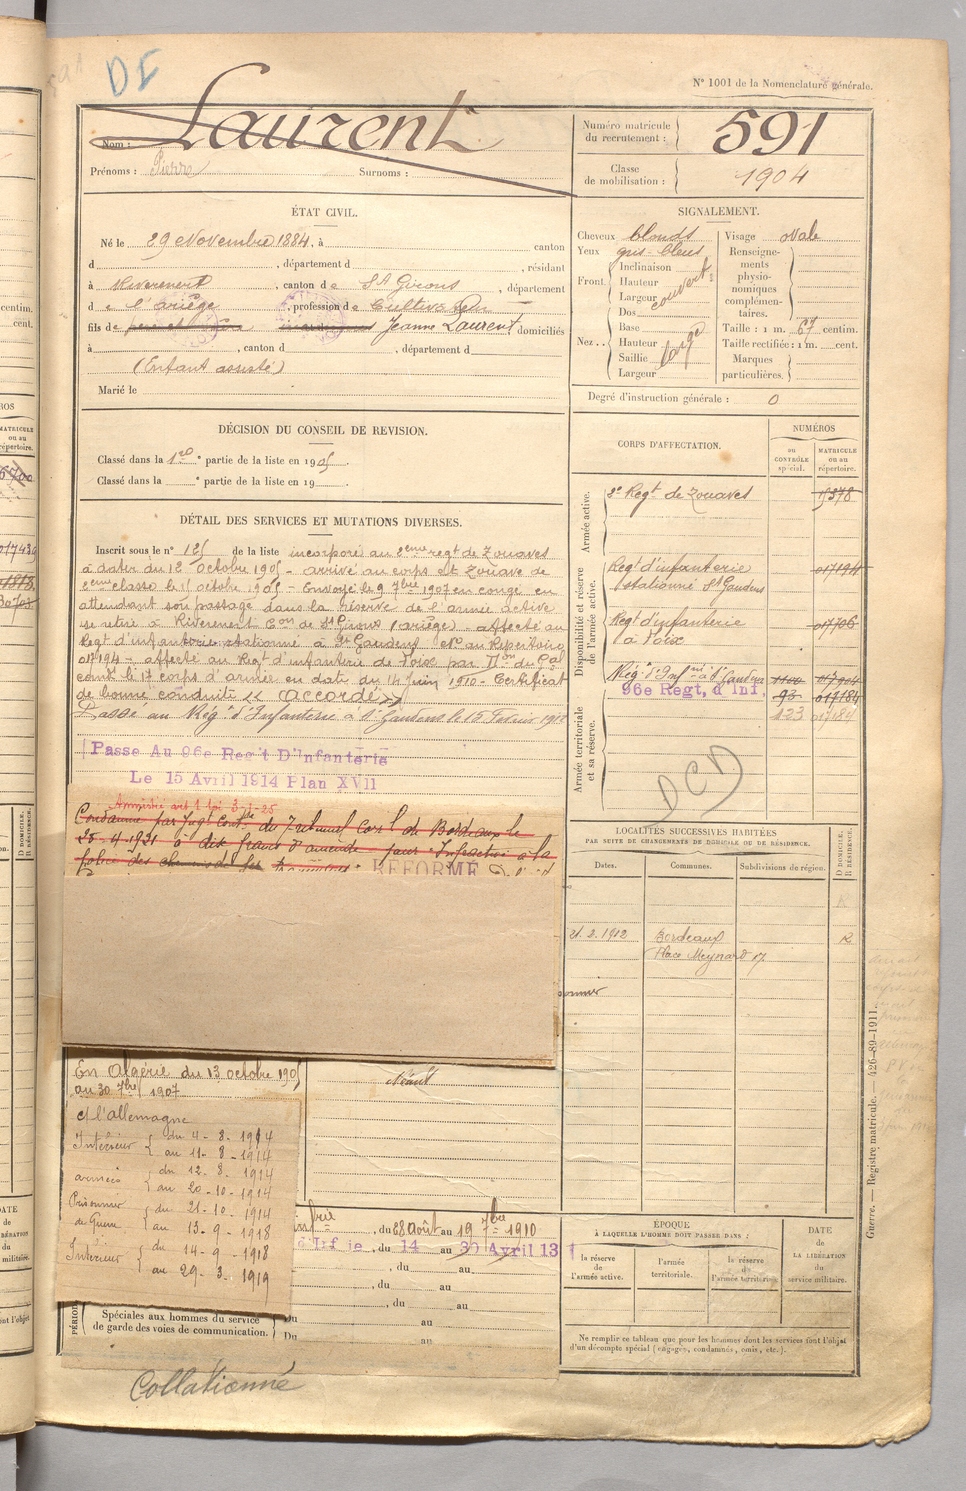 DF
N° 1001 de la Nomenclature générale.
Nom : Laurent
Prénoms : Pierre Surnoms :
Numéro matricule du recrutement : 591
Classe de mobilisation : 1904
ÉTAT CIVIL.
Né le 29 Novembre 1884, à canton
d , département d , résidant
à Rivèrenert , canton de St Girons , département
de l'Ariège , profession de Cultivateur
fils de père et mère Jeanne Laurent, domiciliés
à , canton d , département d
(Enfant assisté)
Marié le
SIGNALEMENT.
Cheveux blonds
Yeux gris-bleus
Front Inclinaison
Hauteur
Largeur
couvert
Nez Dos
Base
Hauteur
Saillie
Largeur
large
Visage ovale
Renseignements physionomiques complémentaires.
Taille : 1 m. 67 centim.
Taille rectifiée : 1 m. cent.
Marques particulières.
Degré d'instruction générale : 0
DÉCISION DU CONSEIL DE REVISION.
Classé dans la 1re partie de la liste en 1905.
Classé dans la e partie de la liste en 19 .
CORPS D'AFFECTATION.
NUMÉROS
au CONTRÔLE spécial.
MATRICULE ou au répertoire.
Armée active.
2e Regt de Zouaves 15378
Disponibilité et réserve de l'armée active.
Regt d'infanterie 017194
stationné St Gaudens
Regt d'infanterie 017706
à Foix
Rég't d'Infrie à St Gaudens
96e Regt, d'Inf. 93 017184
123 01784
Armée territoriale et sa réserve.
DCD
DÉTAIL DES SERVICES ET MUTATIONS DIVERSES.
Inscrit sous le n° 125 de la liste incorporé au 2eme regt de Zouaves
à dater du 12 octobre 1905 - arrivé au corps et Zouave de
2eme classe le 15 octobre 1905 - Envoyé le 9 7bre 1907 en congé en
attendant son passage dans la réserve de l'armée active
se retire à Rivèrenert Con de St Girons (Ariège) - affecté au
Regt d'infanterie stationné à St Gaudens No au Répertoire
017194 - affecté au Regt d'infanterie de Foix par Don du Gal
comt le 17 corps d'armée en date du 14 juin 1910 - Certificat
de bonne conduite « accordé »
Passé au Rég't d'Infanterie à St Gaudens le 15 Février 1912
Passe Au 96e Reg't D'Infanterie
Le 15 Avril 1914 Plan XVII
Amnistié art 1 loi 3-1-25
Condamné par Jugt Contre du Tribunal Corl de Bordeaux le
25-4-1921 à dix francs d'amende pour Infraction à la
police des chemins de fer
RÉFORMÉ
LOCALITÉS SUCCESSIVES HABITÉES
PAR SUITE DE CHANGEMENTS DE DOMICILE OU DE RÉSIDENCE.
Dates. Communes. Subdivisions de région. D DOMICILE, R RÉSIDENCE.
21.2.1912 Bordeaux R
Place Meynard 17
En Algérie du 13 octobre 1905
au 30 7bre 1907
Néant
c/ l'allemagne
Intérieur du 4-8-1914
au 11-8-1914
armées du 12-8-1914
au 20-10-1914
Prisonnier du 21-10-1914
de Guerre au 13-9-1918
Intérieur du 14-9-1918
au 29-3-1919
, du 28 Août au 19 7bre 1910
d'Inf ie , du 14 au 30 Avril 13
, du au
, du au
, du au
Spéciales aux hommes du service
de garde des voies de communication.
Du au
Du au
ÉPOQUE
À LAQUELLE L'HOMME DOIT PASSER DANS :
la réserve de l'armée active.
l'armée territoriale.
la réserve de l'armée territoriale
DATE de LA LIBÉRATION du service militaire.
Ne remplir ce tableau que pour les hommes dont les services font l'objet
d'un décompte spécial (engagés, condamnés, omis, etc.).
Guerre. — Registre matricule. — 426-89-1911.
Collationné